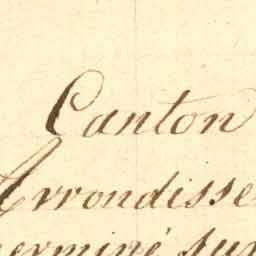 Canton
Arrondisse
erminé sur